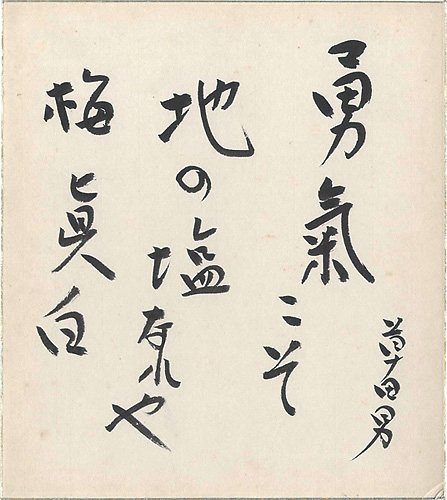 勇氣こそ
地の塩なれや
梅眞白
草田男